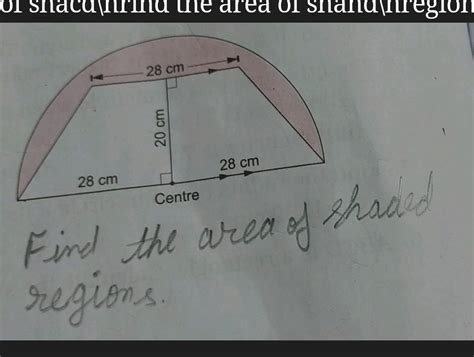 of shacd\nrind the area of shahd\nregion
28 cm
20 cm
28 cm
28 cm
Centre
Find the area of shaded
regions.